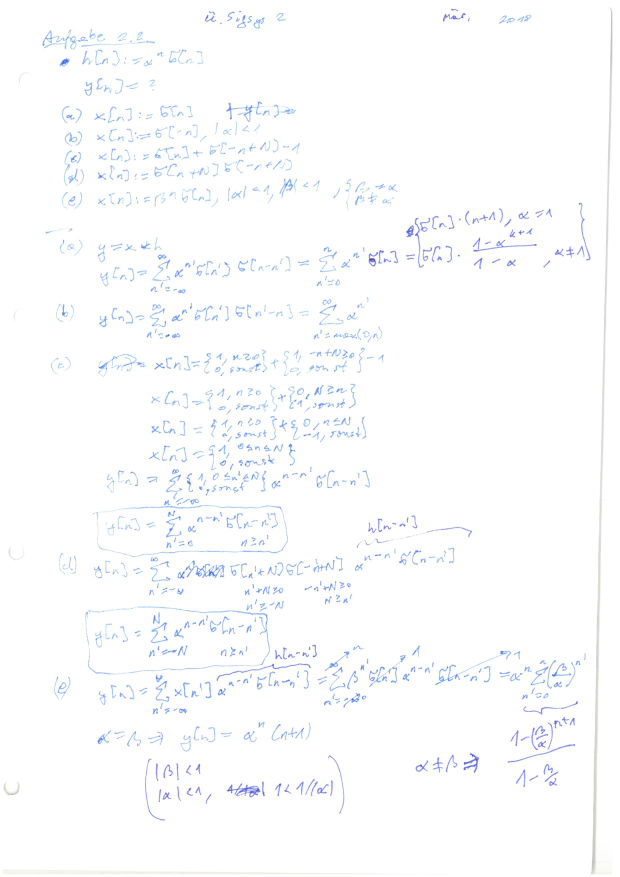 Ü. Sigsys 2 März, 2018
Aufgabe 2.2
• h[n] := α^n σ[n]
y[n] = ?
(a) x[n] := σ[n]
(b) x[n] := σ[-n], |α|<1
(c) x[n] := σ[n] + σ[-n+N] - 1
(d) x[n] := σ[n+N] σ[-n+N]
(e) x[n] := β^n σ[n], |α|<1, |β|<1, { β=α β≠α
(a) y = x * h
y[n] = ∑_{n'=-∞}^{∞} α^{n'} σ[n'] σ[n-n'] = ∑_{n'=0}^{n} α^{n'} σ[n] = { σ[n]·(n+1), α=1 σ[n]· (1-α^{k+1})/(1-α), α≠1 }
(b) y[n] = ∑_{n'=-∞}^{∞} α^{n'} σ[n'] σ[n'-n] = ∑_{n'=max(0,n)}^{∞} α^{n'}
(c) x[n] = {1, n≥0 0, sonst} + {1, -n+N≥0 0, sonst} - 1
x[n] = {1, n≥0 0, sonst} + {0, N≥n 1, sonst}
x[n] = {1, n≥0 0, sonst} + {0, n≤N -1, sonst}
x[n] = {1, 0≤n≤N 0, sonst}
y[n] = ∑_{n'=-∞}^{∞} {1, 0≤n'≤N 0, sonst} α^{n-n'} σ[n-n']
y[n] = ∑_{n'=0}^{N} α^{n-n'} σ[n-n'] n≥n'
h[n-n']
(d) y[n] = ∑_{n'=-∞}^{∞} σ[n'+N] σ[-n'+N] α^{n-n'} σ[n-n']
n'+N≥0 -n'+N≥0
n'≥-N N≥n'
y[n] = ∑_{n'=-N}^{N} α^{n-n'} σ[n-n'] n≥n'
h[n-n'] n 1 1
(e) y[n] = ∑_{n'=-∞}^{∞} x[n'] α^{n-n'} σ[n-n'] = ∑_{n'=0}^{∞} β^{n'} σ[n'] α^{n-n'} σ[n-n'] = α^n ∑_{n'=0}^{n} (β/α)^{n'}
α=β ⇒ y[n] = α^n (n+1)
α≠β ⇒ (1-(β/α)^{n+1})/(1-β/α)
|β|<1
|α|<1, 1<1/|α|